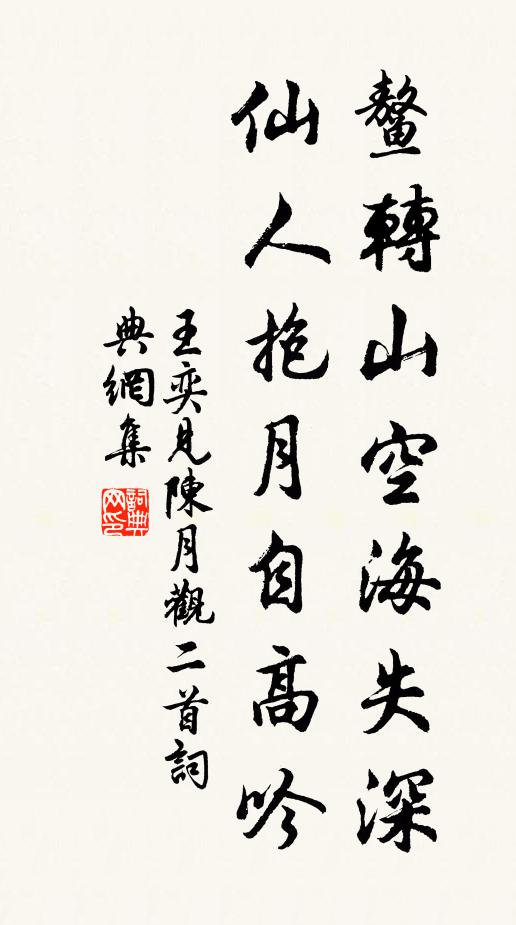 鳌轉山空海失深
仙人抱月自高吟
王奕見陳月觀二首詞
典網集
詞典網印